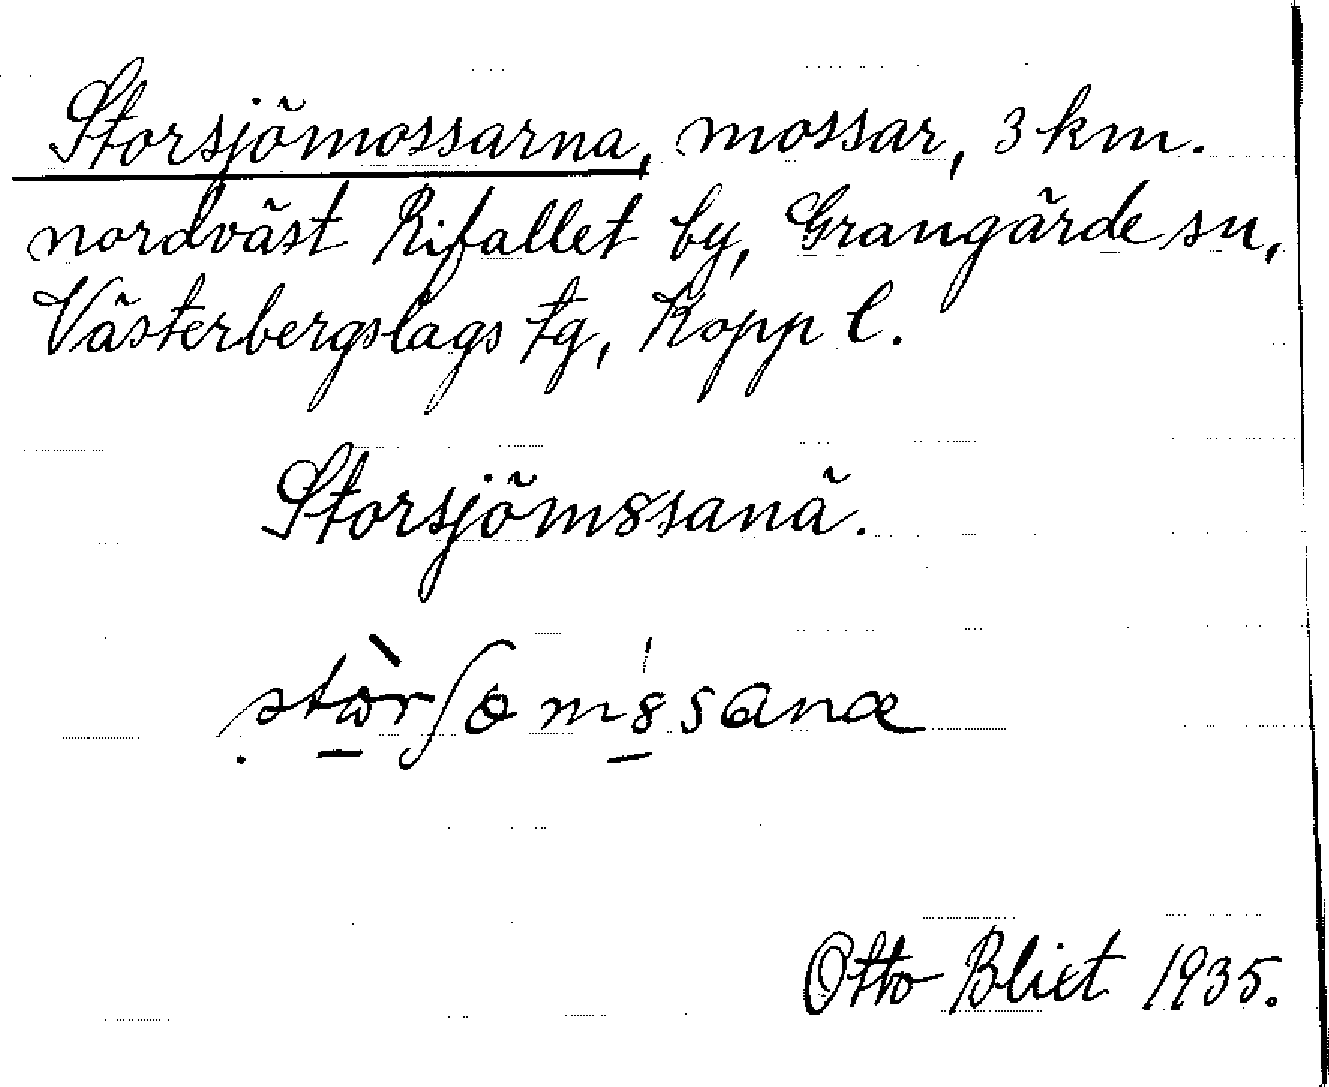 Storsjömossarna, mossar, 3 km.
nordväst Rifallet by, Grangärde sn,
Västerbergslags tg, Kopp l.
Storsjöm8sanä.
Otto Blixt 1935.